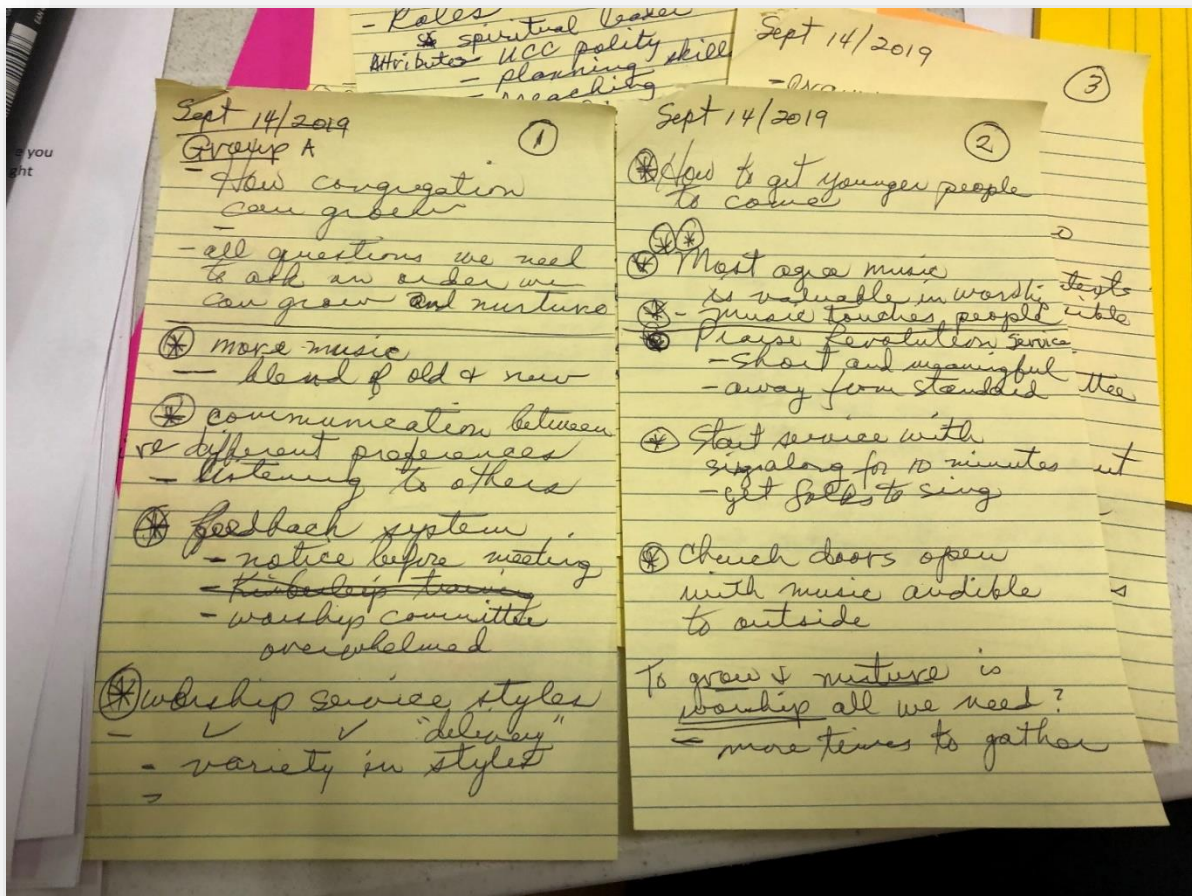 - Roles
* spiritual leader
Attributes - UCC polity
- planning skill
- preaching
Sept 14/2019
3
e you
ght
Sept 14/2019
1
Group A
- How congregation
can grow
-
- all questions we need
to ask an order we
can grow and nurture
* more music
- blend of old & new
* communication between
re different preferences
- listening to others
* feedback system
- notice before meeting
- worship committee
overwhelmed
* worship service styles
- ✓ ✓ "delivery"
- variety in styles
-
Sept 14/2019
2
* How to get younger people
to come
* *
* Most agree music
is valuable in worship
* - music touches people
Praise Revolution service
- short and meaningful
- away from standard
* Start service with
singalong for 10 minutes
- get folks to sing
* Church doors open
with music audible
to outside
To grow & nurture is
worship all we need?
- more times to gather
texts
ible
ttee
ut
s